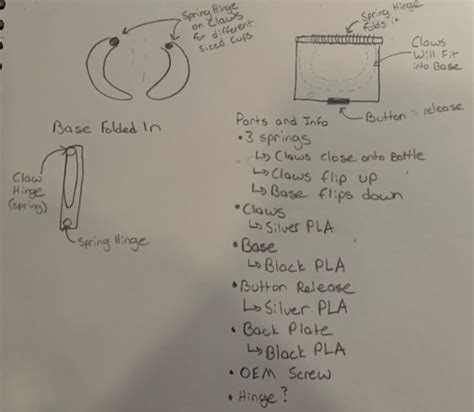 Spring Hinge
on Claws
for different
sized cups
Spring Hinge
folds it
Claws
Will Fit
into Base
Button release
Base Folded In
Claw
Hinge
(spring)
Spring Hinge
Parts and Info
• 3 springs
↳ Claws close onto Bottle
↳ Claws flip up
↳ Base flips down
• Claws
↳ Silver PLA
• Base
↳ Black PLA
• Button Release
↳ Silver PLA
• Back Plate
↳ Black PLA
• OEM Screw
• Hinge?